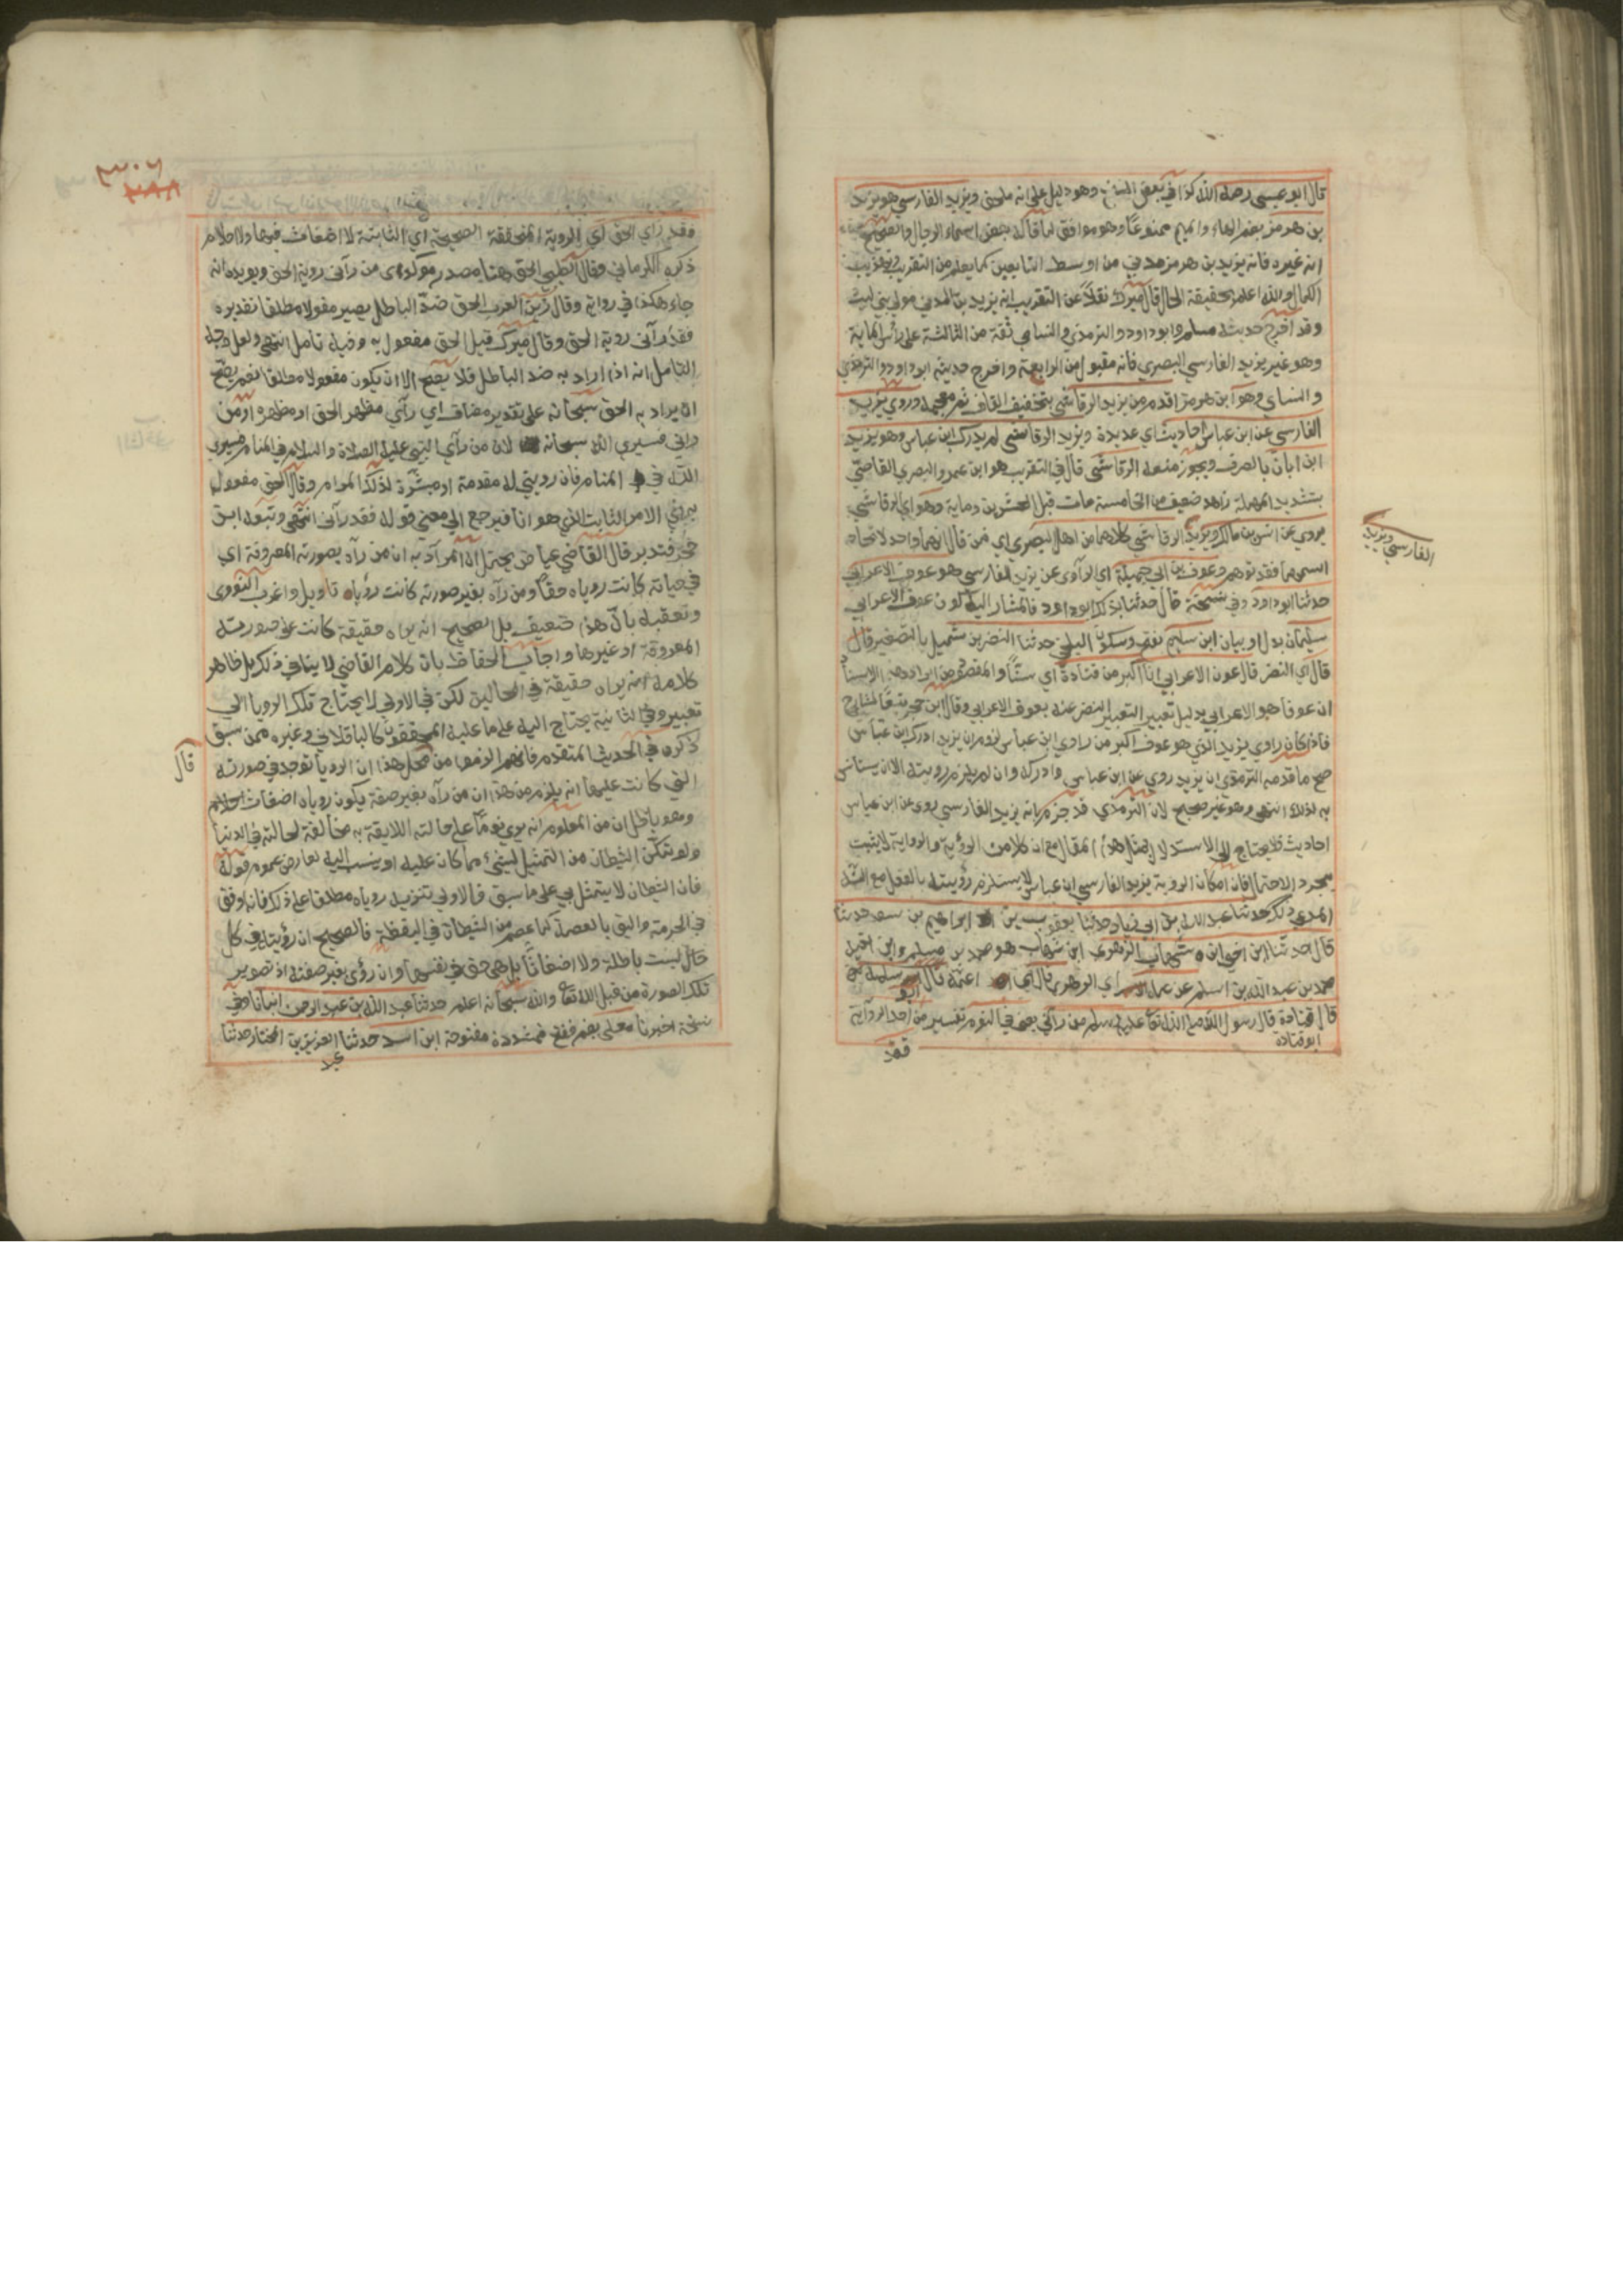 قال ابو عيسى رحمه الله كذا في بعض النسخ وهو دليل على انه ملحق ويزيد الفارسي هو يزيد
بن هرمز بضم الهاء والميم ممنوعًا وهو موافق لما قاله بعض اسماء الرجال والصحيح
انه غيره فانه يزيد بن هرمز مدني من اوسط التابعين كما يعلم من التقريب وتهذيب
الكمال والله اعلم بحقيقة الحال قال ميرك نقلاً عن التقريب انه يزيد بن المدني مولى بني ليث
وقد اخرج حديثه مسلم وابو داود والترمذي والنسائي ثقة من الثالثة على رأس المائة
وهو غير يزيد الفارسي البصري فانه مقبول من الرابعة واخرج حديثه ابو داود والترمذي
والنساي وهو ابن هرمز اقدم من يزيد الرقاشي بتخفيف القاف ثم معجمة وروي يزيد
الفارسي عن ابن عباس احاديث اي عديدة ويزيد الرقاشي لم يدرك ابن عباس وهو يزيد
ابن ابان بالصرف ويجوز منعه الرقاشي قال في التقريب هو ابن عمرو البصري القاصّ
بتشديد المهملة زاهد ضعيف من الخامسة مات قبل العشرين وماية وهو اي الرقاشي
يروي عن انس بن مالك ويزيد الرقاشي كلاهما من اهل البصرة اي فمن قال انهما واحد لاتحاد
الفارسي ويزيد
اسمهما فقد توهم وعوف بن ابي جميلة اي الراوي عن يزيد الفارسي هو عوف الاعرابي
حدثنا ابو داود وفي نسخة قال حدثنا بذلك ابو داود فالمشار اليه كون عوف الاعرابي
سليمان بدل او بيان ابن سلم بفتح وسكون البلخي حدثنا النضر بن شميل بالتصغير قال
قال اي النضر قال عوف الاعرابي انا اكبر من قتادة اي سنًّا والمقصود من ايراد هذا الاسناد
ان عوفا هو الاعرابي بدليل تعبير النضر عنه بعوف الاعرابي وقال ابن حجر تبعًا لشارح
فاذا كان راوي يزيد الذي هو عوف اكبر من راوي ابن عباس لزم ان يزيد ادرك ابن عباس
صح ما قدمه الترمذي ان يزيد روى عن ابن عباس وادركه وان لم يلزم رويته الا ان يستانس
به لذلك انتهى وهو غير صحيح لان الترمذي قد جزم بانه يزيد الفارسي روى عن ابن عباس
احاديث فلا يحتاج الى الاستدلال بمثل هذا المقال مع ان كلا من الرؤية والرواية لا يثبت
بمجرد الاحتمال فان امكان الروية يزيد الفارسي ابن عباس لا يستلزم رؤيته بالفعل مع
حدثنا عبد الله بن ابي زياد حدثنا يعقوب بن ابراهيم بن سعد حدثنا
قال حدثنا ابن اخي ابن شهاب الزهري ابن شهاب هو محمد بن مسلم وابن اخيه
محمد بن عبد الله بن اسلم عن عمه اي الزهري قال اي عمه قال ابو سلمة
قال قتادة قال رسول الله صلى الله تعا عليه وسلم من رآني يعني في النوم تفسير من احد الرواية
ابو قتادة
فقد
٣٠٦
فقد راى الحق اي الروية المتحققة الصحيحة اي الثابتة لا اضغاث فيها ولا احلام
ذكره الكرماني وقال الطيبي الحق هنا مصدر موكد اي من رآنى روية الحق ويويده انه
جاء هكذا في رواية وقال زين العرب الحق ضدّ الباطل يصير مفعولا مطلقا تقديره
فقد رآنى روية الحق وقال ميرك قيل الحق مفعول به وفيه تامل انتهى ولعل وجه
التامل انه اذا اراد به ضد الباطل فلا يصح الا ان يكون مفعولا مطلقا نعم يصح
ان يراد به الحق سبحانه على تقدير مضاف اي رآى مظهر الحق او مظهره او من
رانى فسيرى الله سبحانه لان من رآى النبي عليه الصلاة والسلام في المنام سيرى
الله في المنام فان رويتي له مقدمة او مبشرة لذلك المرام وقال الحق مفعول
به اي الامر الثابت الذي هو انا فيرجع الى معنى قوله فقد رآنى انتهى وتبعه ابن
حجر فتدبر قال القاضي عياض يحتمل ان المراد به ان من رآه بصورته المعروفة اي
في حياته كانت روياه حقًّا ومن رآه بغير صورته كانت رؤياه تاويل واغرب النووى
وتعقبه بان هذا ضعيف بل الصحيح انه يراه حقيقة كانت على صورته
المعروفة او غيرها واجاب الحفاظ بان كلام القاضي لا ينافي ذلك بل ظاهر
كلامه انه يراه حقيقة في الحالين لكن في الاولى لا يحتاج تلك الرويا الى
تعبير وفي الثانية يحتاج اليه على ما عليه المحققون كالباقلاني وغيره ممن سبق
ذكره في الحديث المتقدم فانهم الزموا من هذا ان الرويا توجد في صورته
قال
التي كانت عليها انه يلزم من هذا ان من رآه بغير صفة يكون روياه اضغاث احلام
وهو باطل ان من المعلوم انه يرى نومًا على حالته اللايقة به مخالفة لحالته في الدنيا
ولو تمكّن الشيطان من التمثيل لشيء مما كان عليه او ينسب اليه لعارض عموم قوله
فان الشيطان لا يتمثل بي على ما سبق فالاولى تنزيه روياه مطلقا على ذلك فانه اوفق
في الحرمة واليق بالعصمة كما عصم من الشيطان في اليقظة فالصحيح ان رؤيته في كل
حال ليست باطلة ولا اضغاثًا بل هي حق في نفسها وان رؤى بغير صفته اذ تصوير
تلك الصورة من قبل الله تعا والله سبحانه اعلم حدثنا عبد الله بن عبد الرحمن انبانا وفي
نسخة اخبرنا معلى بضم ففتح فمشددة مفتوحة ابن اسد حدثنا العزيز بن المختار حدثنا